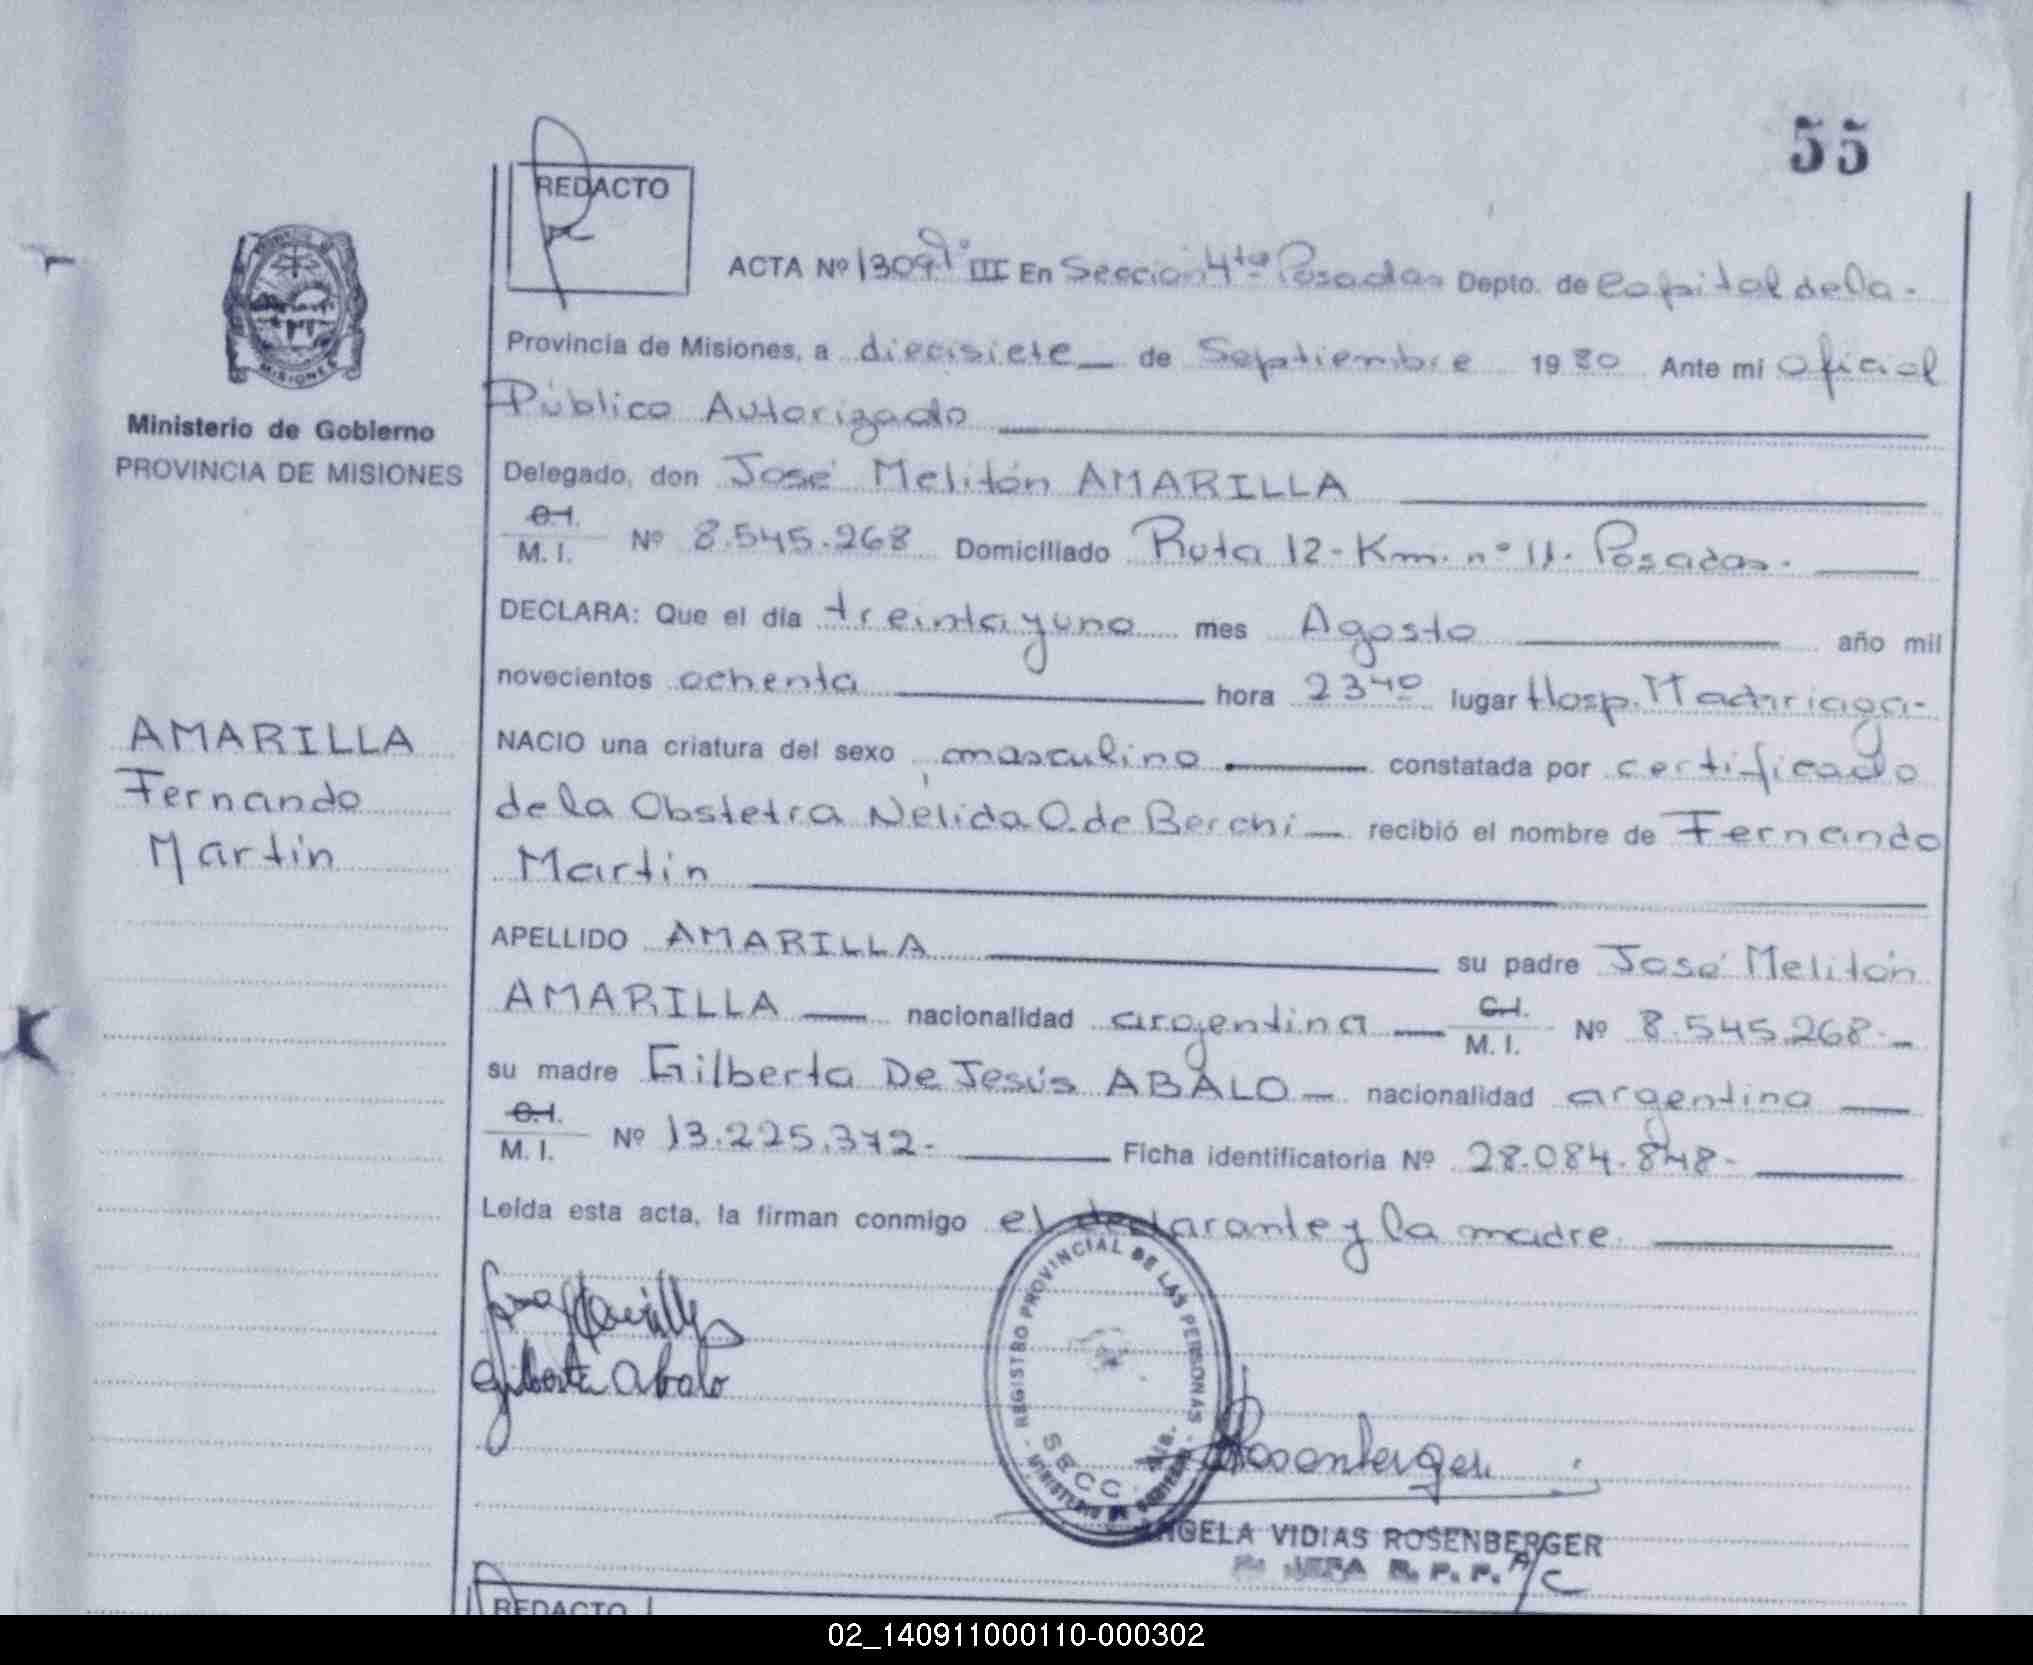 55
REDACTO
ACTA Nº 1309 Tº III En Sección 4ta Posadas Depto. de Capital de la
Provincia de Misiones, a diecisiete de Septiembre 1980 Ante mi Oficial
Público Autorizado
Ministerio de Gobierno
PROVINCIA DE MISIONES
Delegado, don José Melitón AMARILLA
C.I.
M. I. Nº 8.545.268 Domiciliado Ruta 12 - Km. nº 11. Posadas.
DECLARA: Que el día treinta y uno mes Agosto año mil
novecientos ochenta hora 23 40 lugar Hosp. Madariaga-
AMARILLA
Fernando
Martín
NACIO una criatura del sexo masculino constatada por certificado
de la Obstetra Nélida O. de Berchi recibió el nombre de Fernando
Martín
APELLIDO AMARILLA su padre José Melitón
AMARILLA nacionalidad argentina C.I.
M. I. Nº 8.545.268-
su madre Gilberta De Jesús ABALO nacionalidad argentina
C.I.
M. I. Nº 13.225.372- Ficha identificatoria Nº 28.084.848-
Leída esta acta, la firman conmigo el declarante y la madre.
Gilberta Abalo
REGISTRO PROVINCIAL DE LAS PERSONAS
SECC
Rosenberger
ANGELA VIDIAS ROSENBERGER
JEFA R. P. P. A/C
REDACTO
02_140911000110-000302